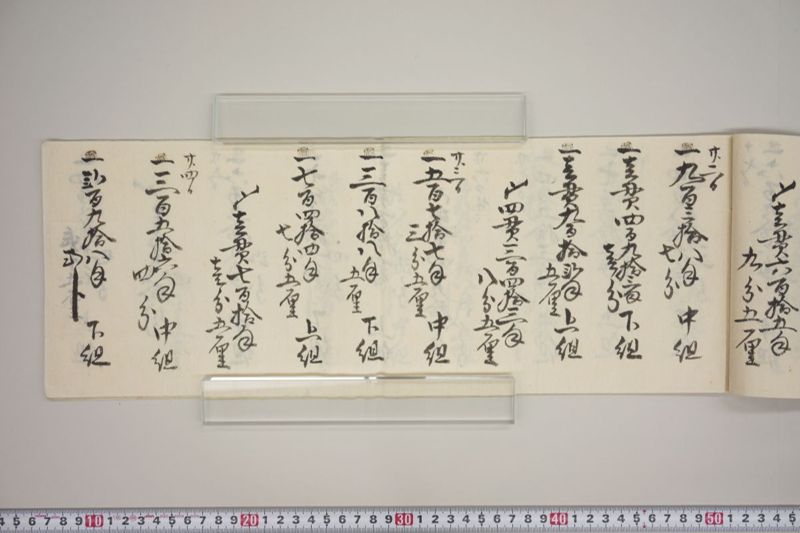 〆壱貫六百拾五匁
九分五厘
廿二日
一九百三拾八匁 中組
七分
一壱貫四百九拾弐匁 下組
壱分
一壱貫九百拾弐匁 上組
五厘
〆四貫三百四拾二匁
八分五厘
廿三日
一五百七拾七匁 中組
三分五厘
一三百八拾八匁 下組
五厘
一七百四拾四匁 上組
七分五厘
〆壱貫七百拾匁
壱分五厘
廿四日
一三百五拾六匁 中組
四分
一弐百九拾八匁 下組